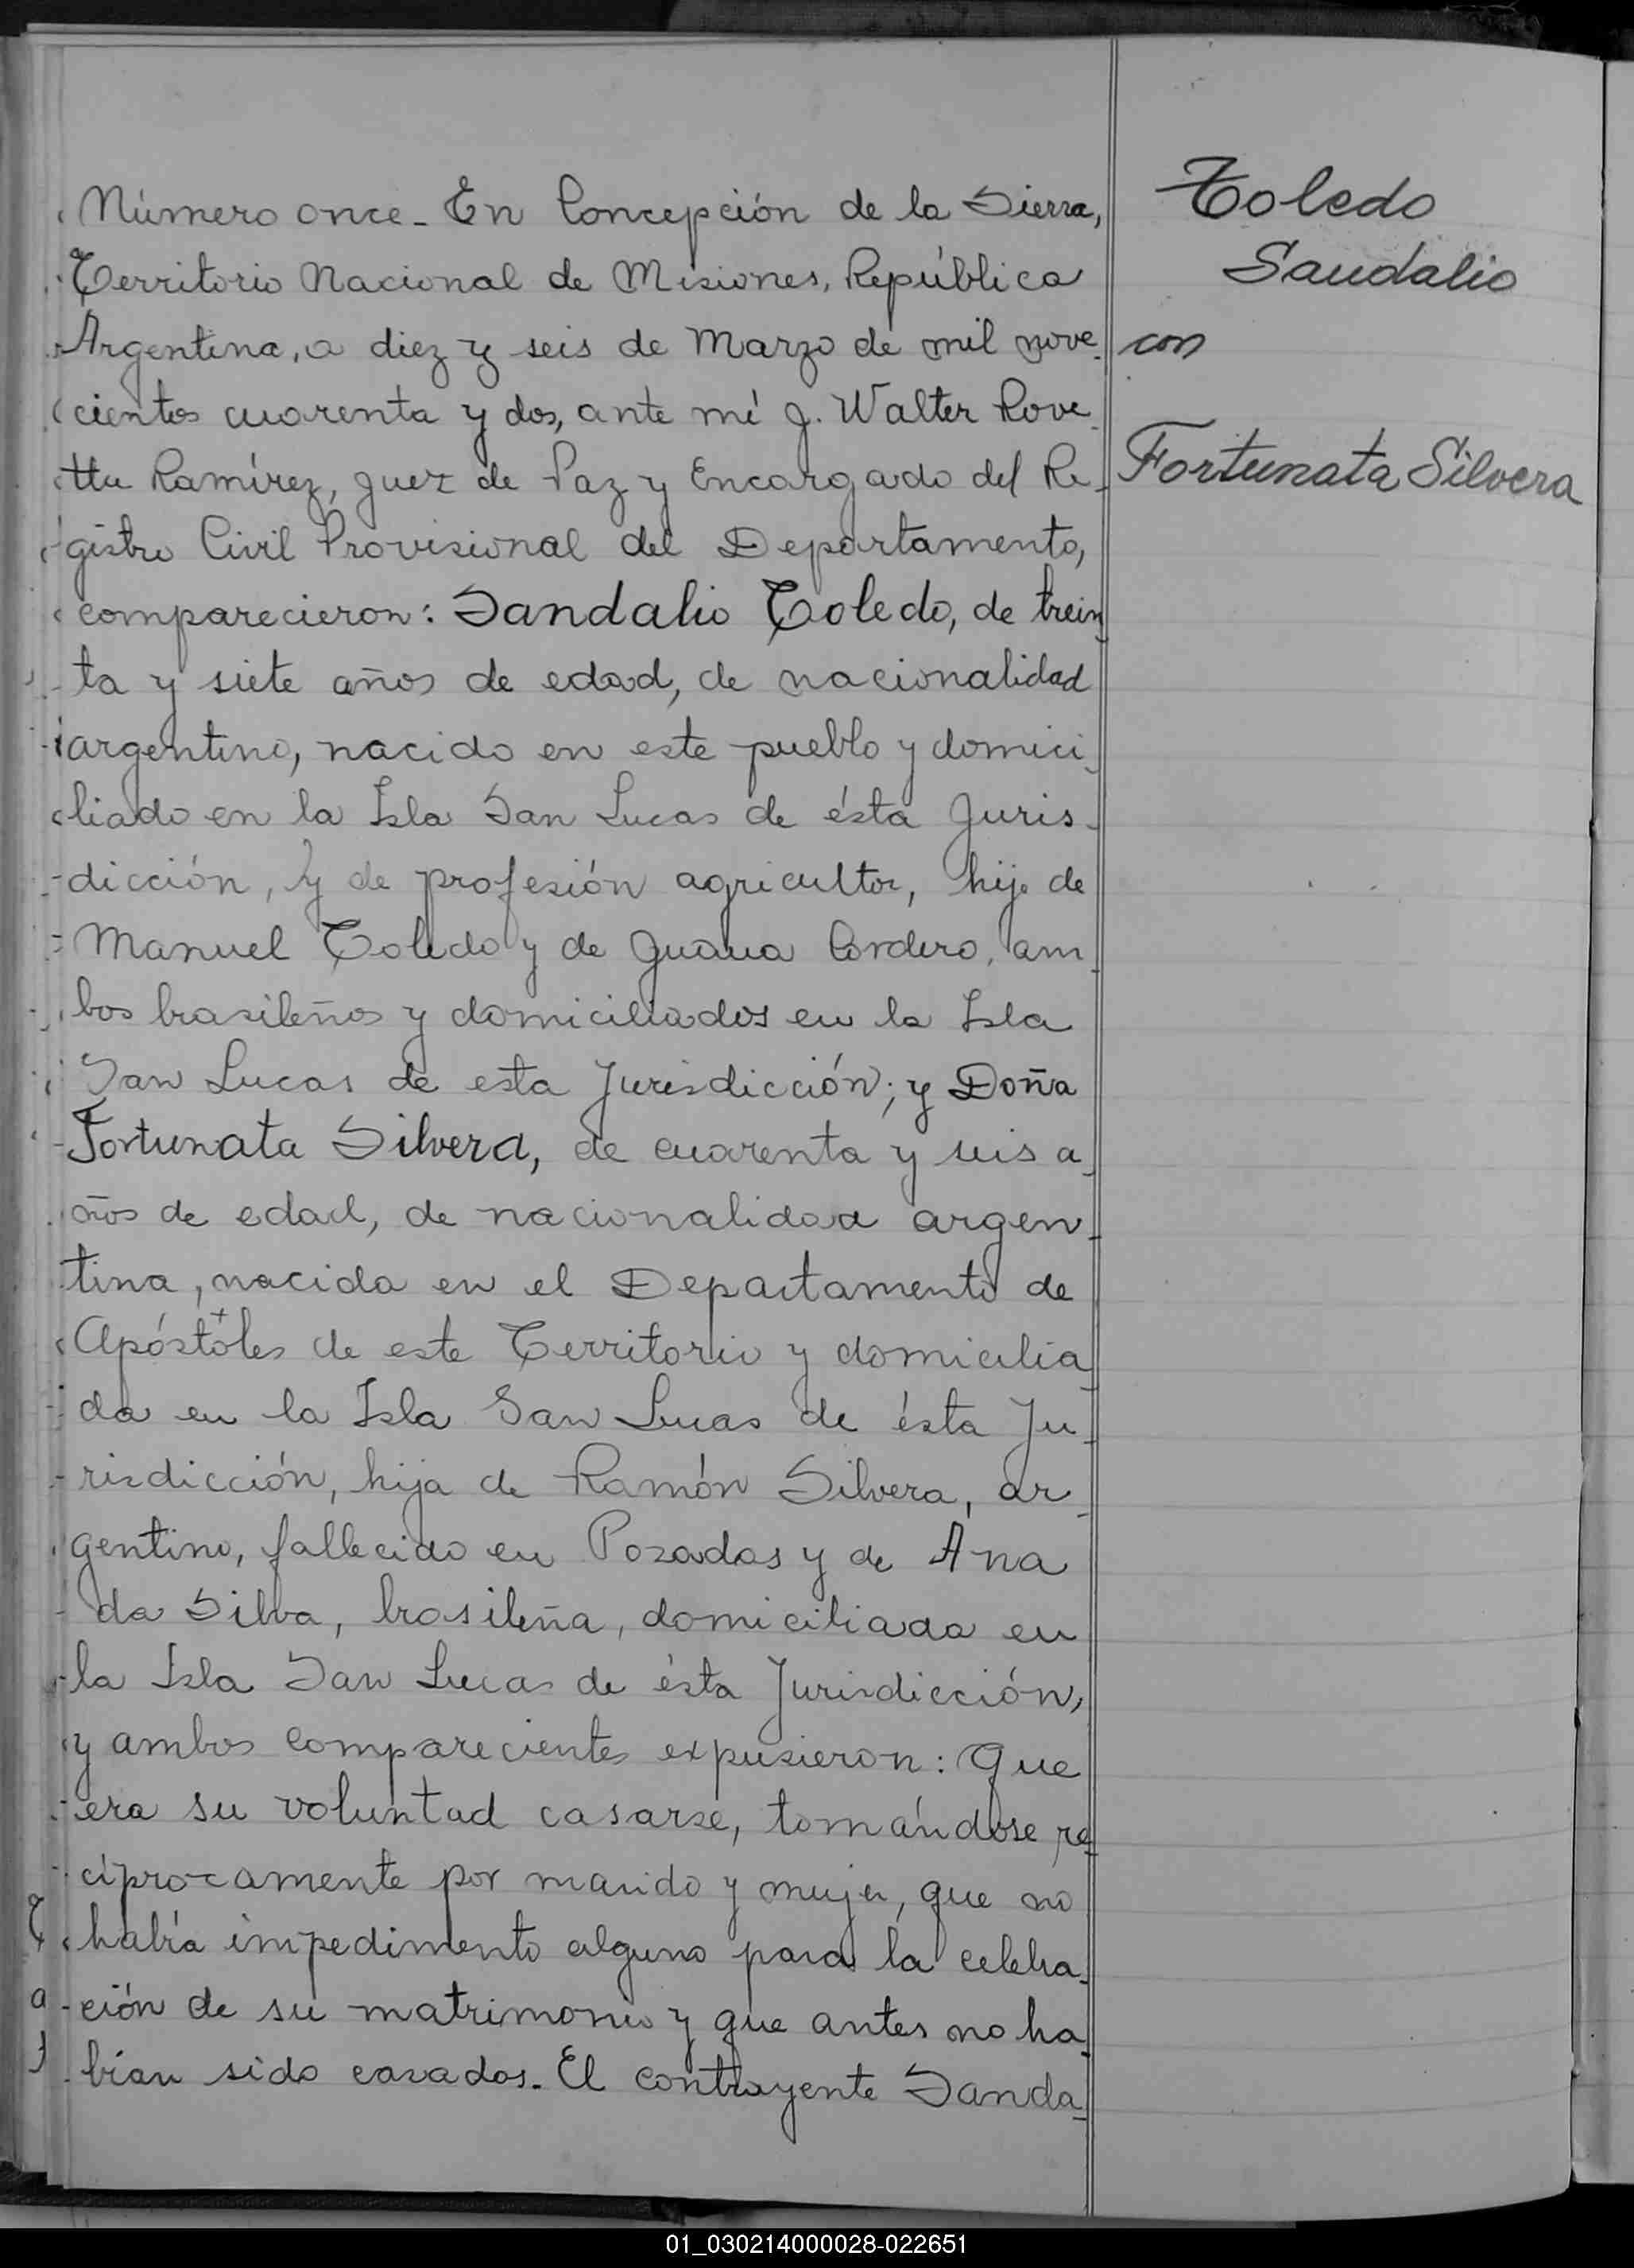 Número once_ En Concepción de la Sierra,
Territorio Nacional de Misiones, República
Argentina, a diez y seis de Marzo de mil nove_
cientos cuarenta y dos, ante mí J. Walter Rove_
tta Ramírez, Juez de Paz y Encargado del Re_
gistro Civil Provisional del Departamento,
comparecieron: Sandalio Toledo, de trein_
ta y siete años de edad, de nacionalidad
argentino, nacido en este pueblo y domici_
liado en la Isla San Lucas de ésta Juris_
dicción, y de profesión agricultor, hijo de
Manuel Toledo y de Juana Cordero, am_
bos brasileños y domiciliados en la Isla
San Lucas de esta Jurisdicción; y Doña
Fortunata Silvera, de cuarenta y seis a_
ños de edad, de nacionalidad argen_
tina, nacida en el Departamento de
Apóstoles de este Territorio y domicilia_
da en la Isla San Lucas de ésta Ju_
risdicción, hija de Ramón Silvera, ar_
gentino, fallecido en Posadas y de Ana
da Silva, brasileña, domiciliada en
la Isla San Lucas de ésta Jurisdicción,
y ambos comparecientes expusieron: Que
era su voluntad casarse, tomándose re_
ciprocamente por marido y mujer, que no
había impedimento alguno para la celebra_
ción de su matrimonio y que antes no ha_
bían sido casados_ El contrayente Sanda_
Toledo
Sandalio
con
Fortunata Silvera
01_030214000028-022651